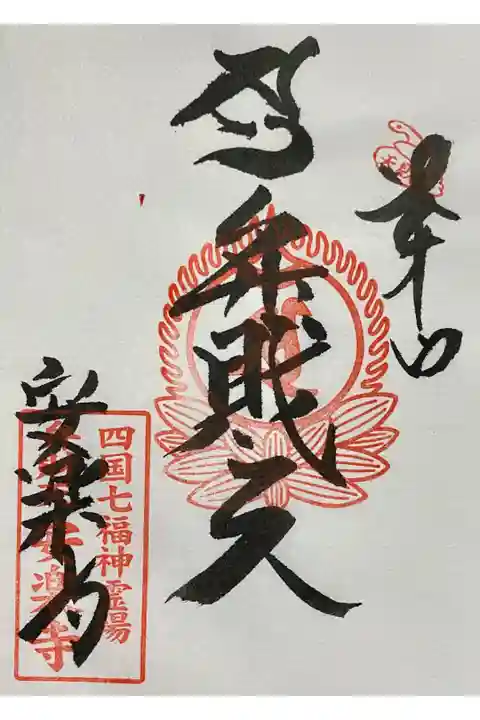 奉拝
弁財天
安楽寺
四国七福神霊場
安楽寺